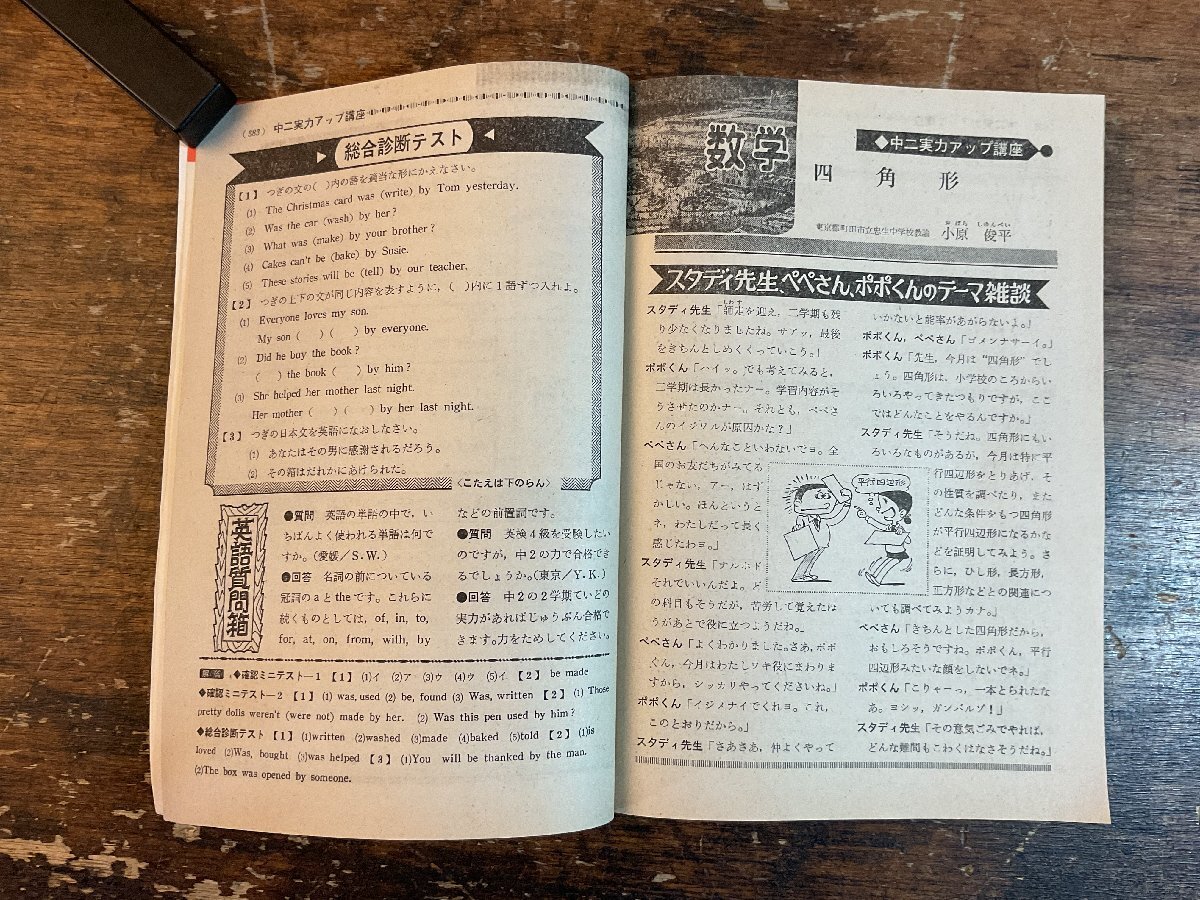 (383) 中二実力アップ講座
総合診断テスト
【1】 つぎの文の( )内の語を適当な形にかえなさい。
(1) The Christmas card was (write) by Tom yesterday.
(2) Was the car (wash) by her?
(3) What was (make) by your brother?
(4) Cakes can't be (bake) by Susie.
(5) These stories will be (tell) by our teacher.
【2】 つぎの上下の文が同じ内容を表すように，( )内に1語ずつ入れよ。
(1) Everyone loves my son.
My son ( ) ( ) by everyone.
(2) Did he buy the book?
( ) the book ( ) by him?
(3) Shr helped her mother last night.
Her mother ( ) ( ) by her last night.
【3】 つぎの日本文を英語になおしなさい。
(1) あなたはその男に感謝されるだろう。
(2) その箱はだれかにあけられた。
〈こたえは下のらん〉
英語質問箱
●質問 英語の単語の中で，い
ちばんよく使われる単語は何で
すか。(愛媛／S.W.)
●回答 名詞の前についている
冠詞のaとtheです。これらに
続くものとしては, of, in, to,
for, at, on, from, with, by
などの前置詞です。
●質問 英検4級を受験したい
のですが，中2の力で合格でき
るでしょうか。(東京／Y.K.)
●回答 中2の2学期ていどの
実力があればじゅうぶん合格で
きます。力をためしてください。
◆確認ミニテスト—1 【1】 (1)イ (2)ア (3)ウ (4)ウ (5)イ 【2】 be made
◆確認ミニテスト—2 【1】 (1) was, used (2) be, found (3) Was, written 【2】 (1) Those
pretty dolls weren't (were not) made by her. (2) Was this pen used by him?
◆総合診断テスト 【1】 (1)written (2)washed (3)made (4)baked (5)told 【2】 (1)is
loved (2)Was, bought (3)was helped 【3】 (1)You will be thanked by the man.
(2)The box was opened by someone.
数学
◆中二実力アップ講座
四角形
東京都町田市立忠生中学校教諭 小原 俊平
おばら しゅんぺい
スタディ先生、ペペさん、ポポくんのテーマ雑談
スタディ先生「師走を迎え，二学期も残
り少なくなりましたね。サアッ，最後
をきちんとしめくくっていこう。」
ポポくん「ハイッ。でも考えてみると，
二学期は長かったナー。学習内容がそ
うさせたのかナー。それとも，ペペさ
んのイジワルが原因かな？」
ペペさん「へんなこといわないでヨ。全
国のお友だちがみてる
じゃない，アー，はず
かしい。ほんというと
ネ，わたしだって長く
感じたわヨ。」
スタディ先生「ナルホド
それでいいんだよ。ど
の科目もそうだが，苦労して覚えたほ
うがあとで役に立つようだね。」
ペペさん「よくわかりました。さあ，ポポ
くん，今月はわたしツキ役にまわりま
すから，シッカリやってくださいね。」
ポポくん「イジメナイでくれヨ。これ，
このとおりだから。」
スタディ先生「さあさあ，仲よくやって
いかないと能率があがらないよ。」
ポポくん，ペペさん「ゴメンナサーイ。」
ポポくん「先生，今月は“四角形”でし
ょう。四角形は，小学校のころからい
ろいろやってきたつもりですが，ここ
ではどんなことをやるんですか。」
スタディ先生「そうだね。四角形にもい
ろいろなものがあるが，今月は特に平
行四辺形をとりあげ，そ
の性質を調べたり，また
どんな条件をもつ四角形
が平行四辺形になるかな
どを証明してみよう。さ
らに，ひし形，長方形，
正方形などとの関連につ
いても調べてみようカナ。」
ペペさん「きちんとした四角形だから，
おもしろそうですね。ポポくん，平行
四辺形みたいな顔をしないでネ。」
ポポくん「こりゃーっ，一本とられたな
あ。ヨシッ，ガンバルゾ！」
スタディ先生「その意気ごみでやれば，
どんな難問もこわくはなさそうだね。」
平行四辺形